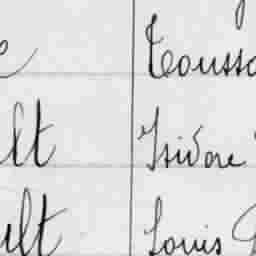 e Toussa
lt Isidore
ult Louis